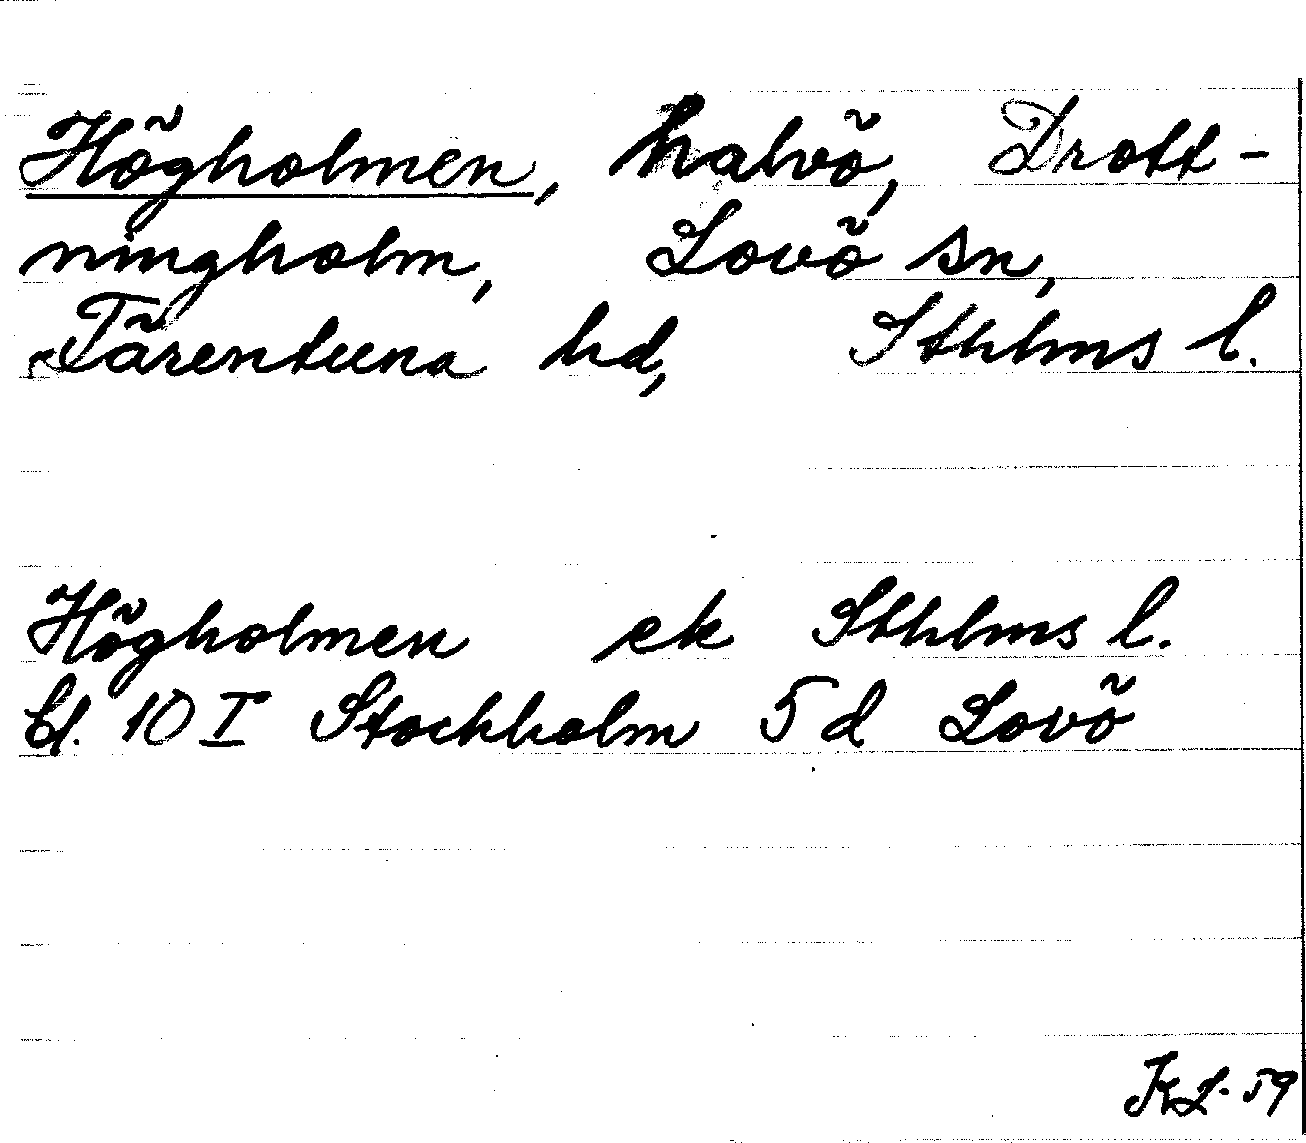 Högholmen, halvö, Drott-
ningholm, Lovö sn,
Färentuna hd, Sthlms l.
Högholmen ek Sthlms l.
bl. 10 I Stockholm 5 d Lovö
KL. 59